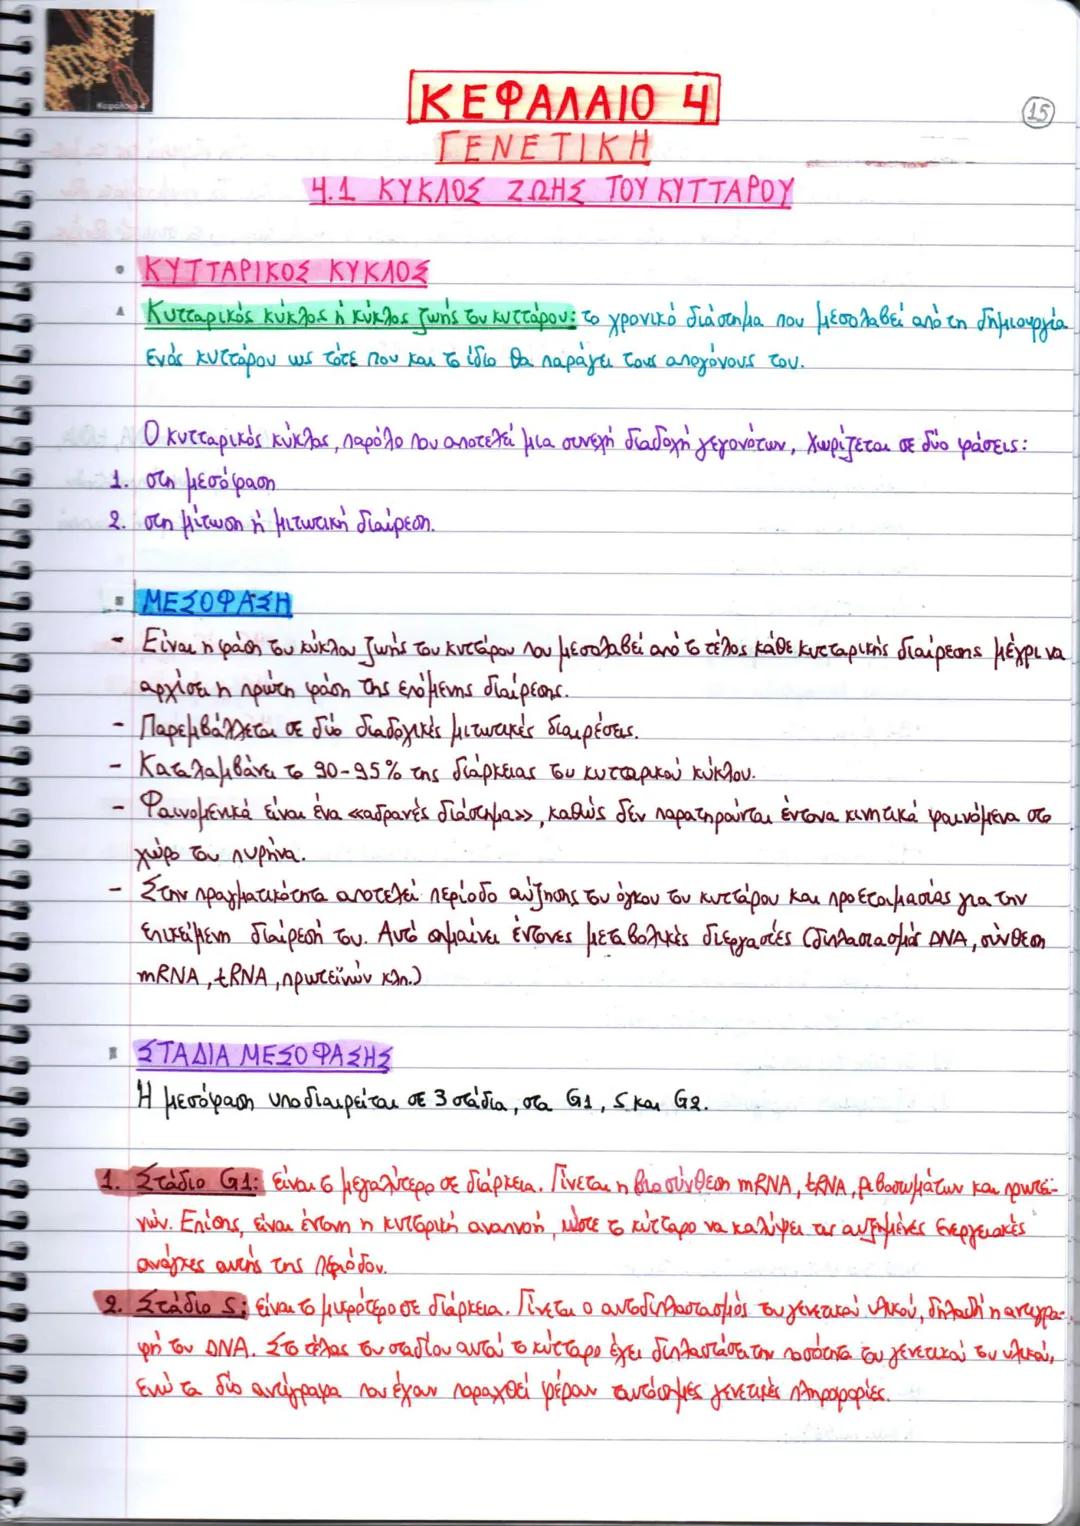 Κεφάλαιο 4
ΚΕΦΑΛΑΙΟ 4
15
ΓΕΝΕΤΙΚΗ
4.1 ΚΥΚΛΟΣ ΖΩΗΣ ΤΟΥ ΚΥΤΤΑΡΟΥ
• ΚΥΤΤΑΡΙΚΟΣ ΚΥΚΛΟΣ
▲ Κυτταρικός κύκλος ή κύκλος ζωής του κυττάρου: το χρονικό διάστημα που μεσολαβεί από τη δημιουργία
ενός κυττάρου ως τότε που και το ίδιο θα παράγει τους απογόνους του.
Ο κυτταρικός κύκλος, παρόλο που αποτελεί μια συνεχή διαδοχή γεγονότων, χωρίζεται σε δύο φάσεις:
1. στη μεσόφαση
2. στη μίτωση ή μιτωτική διαίρεση.
▪ ΜΕΣΟΦΑΣΗ
- Είναι η φάση του κύκλου ζωής του κυττάρου που μεσολαβεί από το τέλος κάθε κυτταρικής διαίρεσης μέχρι να
αρχίσει η πρώτη φάση της επόμενης διαίρεσης.
- Παρεμβάλλεται σε δύο διαδοχικές μιτωτικές διαιρέσεις.
- Καταλαμβάνει το 90-95% της διάρκειας του κυτταρικού κύκλου.
- Φαινομενικά είναι ένα «αδρανές διάστημα», καθώς δεν παρατηρούνται έντονα κινητικά φαινόμενα στο
χώρο του πυρήνα.
- Στην πραγματικότητα αποτελεί περίοδο αύξησης του όγκου του κυττάρου και προετοιμασίας για την
επικείμενη διαίρεσή του. Αυτό σημαίνει έντονες μεταβολικές διεργασίες (διπλασιασμός DNA, σύνθεση
mRNA, tRNA, πρωτεϊνών κλπ.)
▪ ΣΤΑΔΙΑ ΜΕΣΟΦΑΣΗΣ
Η μεσόφαση υποδιαιρείται σε 3 στάδια, στα G1, S και G2.
1. Στάδιο G1: είναι το μεγαλύτερο σε διάρκεια. Γίνεται η βιοσύνθεση mRNA, tRNA, ριβοσωμάτων και πρωτεϊ-
νών. Επίσης, είναι έντονη η κυτταρική αναπνοή, ώστε το κύτταρο να καλύψει τις αυξημένες ενεργειακές
ανάγκες αυτής της περιόδου.
2. Στάδιο S: είναι το μικρότερο σε διάρκεια. Γίνεται ο αυτοδιπλασιασμός του γενετικού υλικού, δηλαδή η αντιγρα-
φή του DNA. Στο τέλος του σταδίου αυτού το κύτταρο έχει διπλασιάσει την ποσότητα του γενετικού του υλικού,
ενώ τα δύο αντίγραφα που έχουν παραχθεί φέρουν ταυτόσημες γενετικές πληροφορίες.